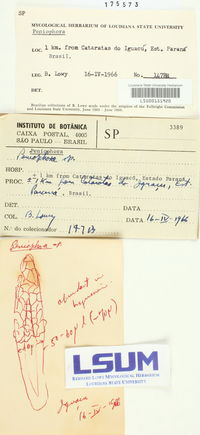 175573
SP
MYCOLOGICAL HERBARIUM OF LOUISIANA STATE UNIVERSITY
Peniophora
LOC. 1 km. from Cataratas do Iguaçú, Est. Paraná
Brasil.
LEG. B. Lowy 16-IV-1966 No. 147BR
Louisiana State University Herbarium
Brazilian collections of B. Lowy made under the auspices of the Fulbright Commission
and Louisiana State University, June 1965 - June 1966.
INSTITUTO DE BOTÂNICA
CAIXA POSTAL, 4005
SÃO PAULO - BRASIL
SP
3389
Peniophora
Peniophora sp.
HOSP.
± 1 km from Cataratas do Iguaçu, Estado Paraná
PROC. ± 1 km from Cataratas do Iguaçu, Est.
Paraná. Brasil.
DET. DATA
COL. B. Lowy DATA 16-IV-1966
N.º do colecionador
Peniophora sp
abundant in
hymenium
Iguaçu
16-IV-1966
LSUM
BERNARD LOWY MYCOLOGICAL HERBARIUM
LOUISIANA STATE UNIVERSITY